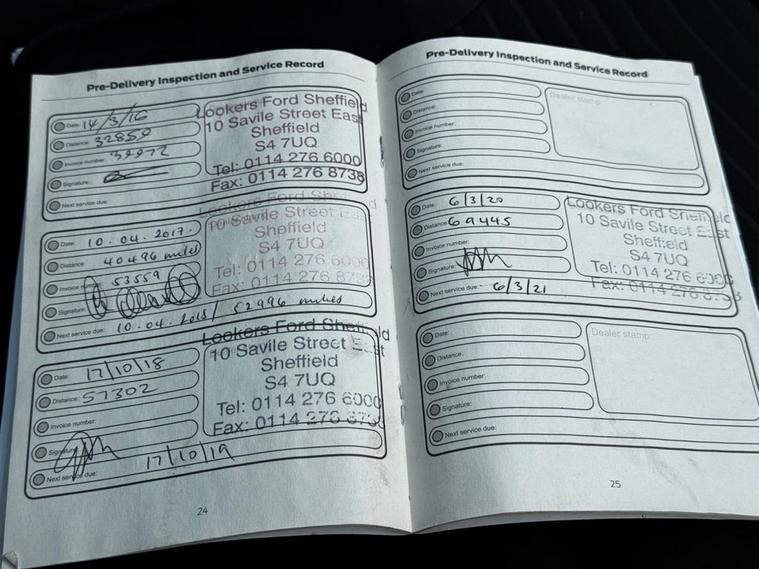 Pre-Delivery Inspection and Service Record
Date: 14/3/16
Distance: 32850
Invoice number:
Signature:
Next service due:
Lookers Ford Sheffield
10 Savile Street East
Sheffield
S4 7UQ
Tel: 0114 276 6000
Fax: 0114 276 8738
Date: 10.04.2017.
Distance: 40496 miles
Invoice n 53559
Signature:
Next service due: 10.04.2018/ 52996 miles
Lookers Ford Sheffield
10 Savile Street East
Sheffield
S4 7UQ
Tel: 0114 276 6000
Fax: 0114 276 873
Date: 17/10/18
Distance: 57302
Invoice number:
Signature:
Next service due: 17/10/19
Lookers Ford Sheffield
10 Savile Street East
Sheffield
S4 7UQ
Tel: 0114 276 6000
Fax: 0114 276 8738
24
Pre-Delivery Inspection and Service Record
Date:
Distance:
Invoice number:
Signature:
Next service due:
Dealer stamp
Date: 6/3/20
Distance: 69445
Invoice number:
Signature:
Next service due: 6/3/21
Lookers Ford Sheffield
10 Savile Street East
Sheffield
S4 7UQ
Tel: 0114 276 6000
Fax: 0114 276 8738
Date:
Distance:
Invoice number:
Signature:
Next service due:
Dealer stamp
25